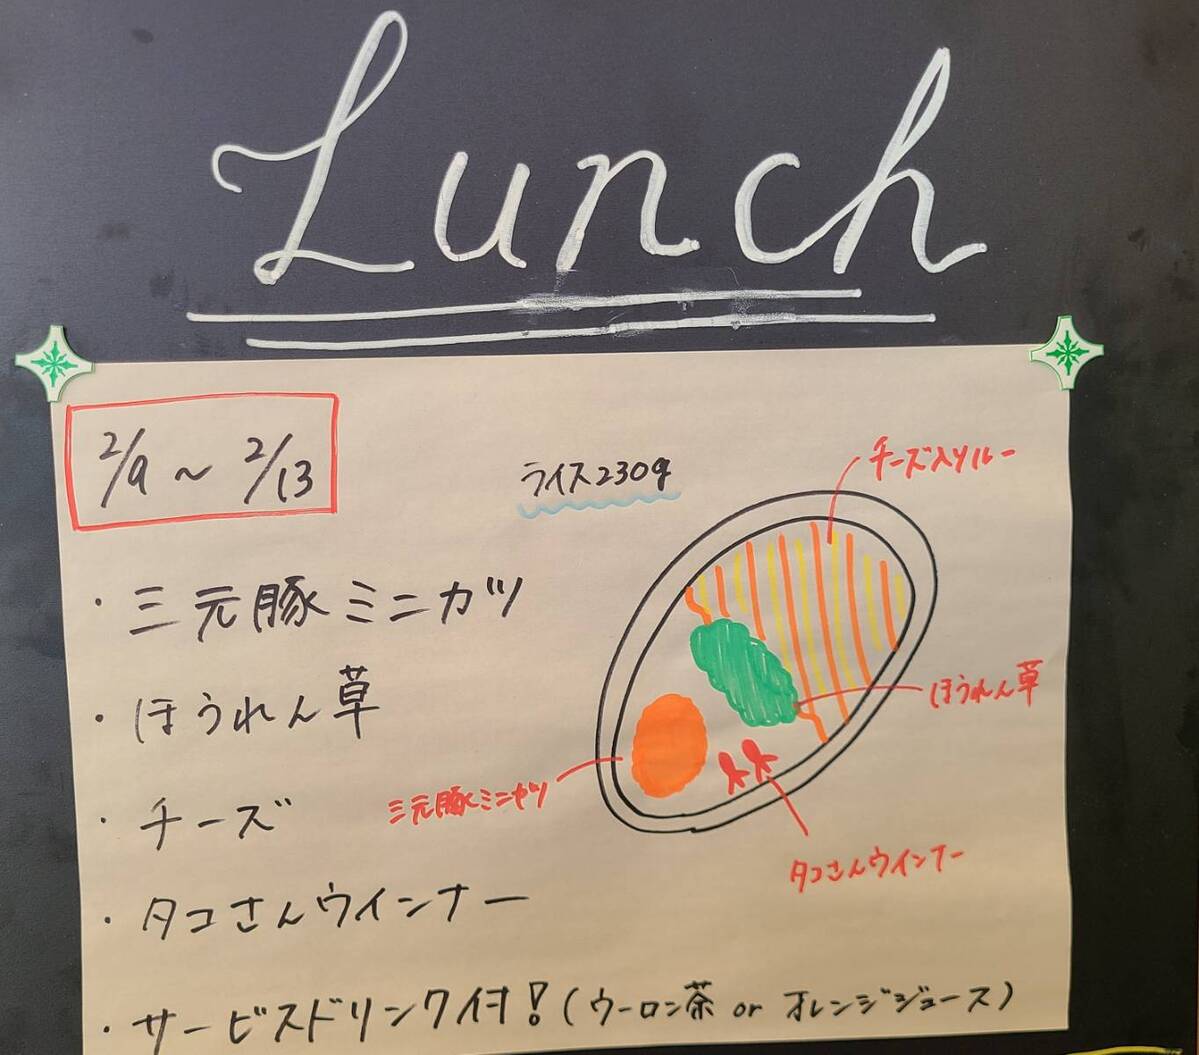 Lunch
2/9 ~ 2/13
ライス230g
チーズ入りルー
・三元豚ミニカツ
・ほうれん草
ほうれん草
・チーズ
三元豚ミニカツ
タコさんウインナー
・タコさんウインナー
・サービスドリンク付!(ウーロン茶 or オレンジジュース)